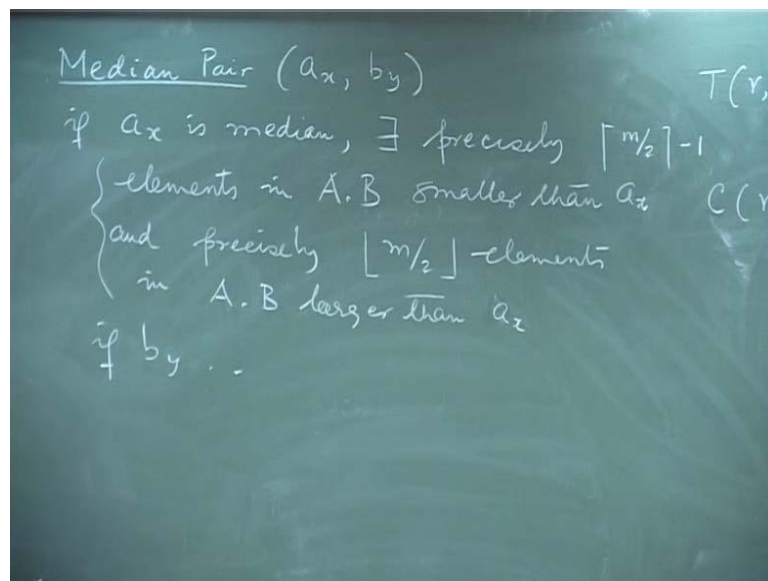 Median Pair (aₓ, b_y)
T(r,
if aₓ is median, ∃ precisely ⌈m/2⌉-1
elements in A.B smaller than aₓ
C(r
and precisely ⌊m/2⌋ elements
in A.B larger than aₓ
if b_y ..